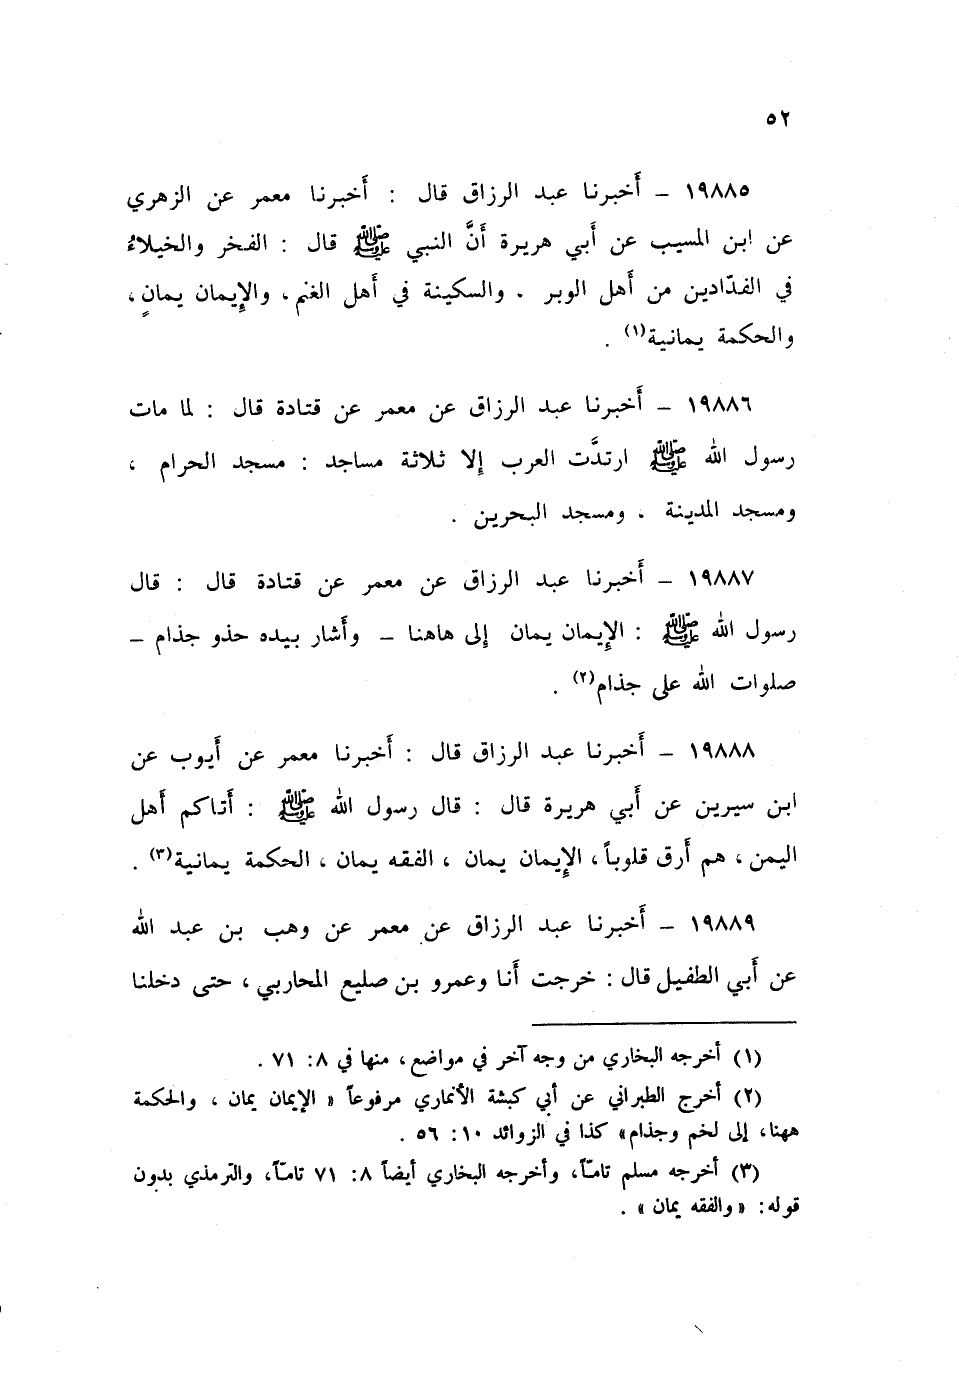 ٥٢
١٩٨٨٥ ـ أَخبرنا عبد الرزاق قال : أَخبرنا معمر عن الزهري
عن ابن المسيب عن أَبي هريرة أَنَّ النبي ﷺ قال : الفخر والخيلاءُ
في الفدّادين من أَهل الوبر . والسكينة في أَهل الغنم، والإِيمان يمانٍ،
والحكمة يمانية(١) .
١٩٨٨٦ ـ أَخبرنا عبد الرزاق عن معمر عن قتادة قال : لما مات
رسول الله ﷺ ارتدَّت العرب إِلا ثلاثة مساجد : مسجد الحرام ،
ومسجد المدينة ، ومسجد البحرين .
١٩٨٨٧ ـ أَخبرنا عبد الرزاق عن معمر عن قتادة قال : قال
رسول الله ﷺ : الإِيمان يمان إِلى هاهنا ـ وأَشار بيده حذو جذام ـ
صلوات الله على جذام(٢) .
١٩٨٨٨ ـ أَخبرنا عبد الرزاق قال : أَخبرنا معمر عن أَيوب عن
ابن سيرين عن أَبي هريرة قال : قال رسول الله ﷺ : أَتاكم أَهل
اليمن، هم أَرق قلوباً، الإِيمان يمان ، الفقه يمان ، الحكمة يمانية(٣) .
١٩٨٨٩ ـ أَخبرنا عبد الرزاق عن معمر عن وهب بن عبد الله
عن أَبي الطفيل قال : خرجت أَنا وعمرو بن صليع المحاربي، حتى دخلنا
(١) أخرجه البخاري من وجه آخر في مواضع، منها في ٨: ٧١ .
(٢) أخرج الطبراني عن أبي كبشة الأنماري مرفوعاً « الإيمان يمان ، والحكمة
ههنا، إلى لخم وجذام» كذا في الزوائد ١٠: ٥٦ .
(٣) أخرجه مسلم تامّاً، وأخرجه البخاري أيضاً ٨: ٧١ تامّاً، والترمذي بدون
قوله: « والفقه يمان » .